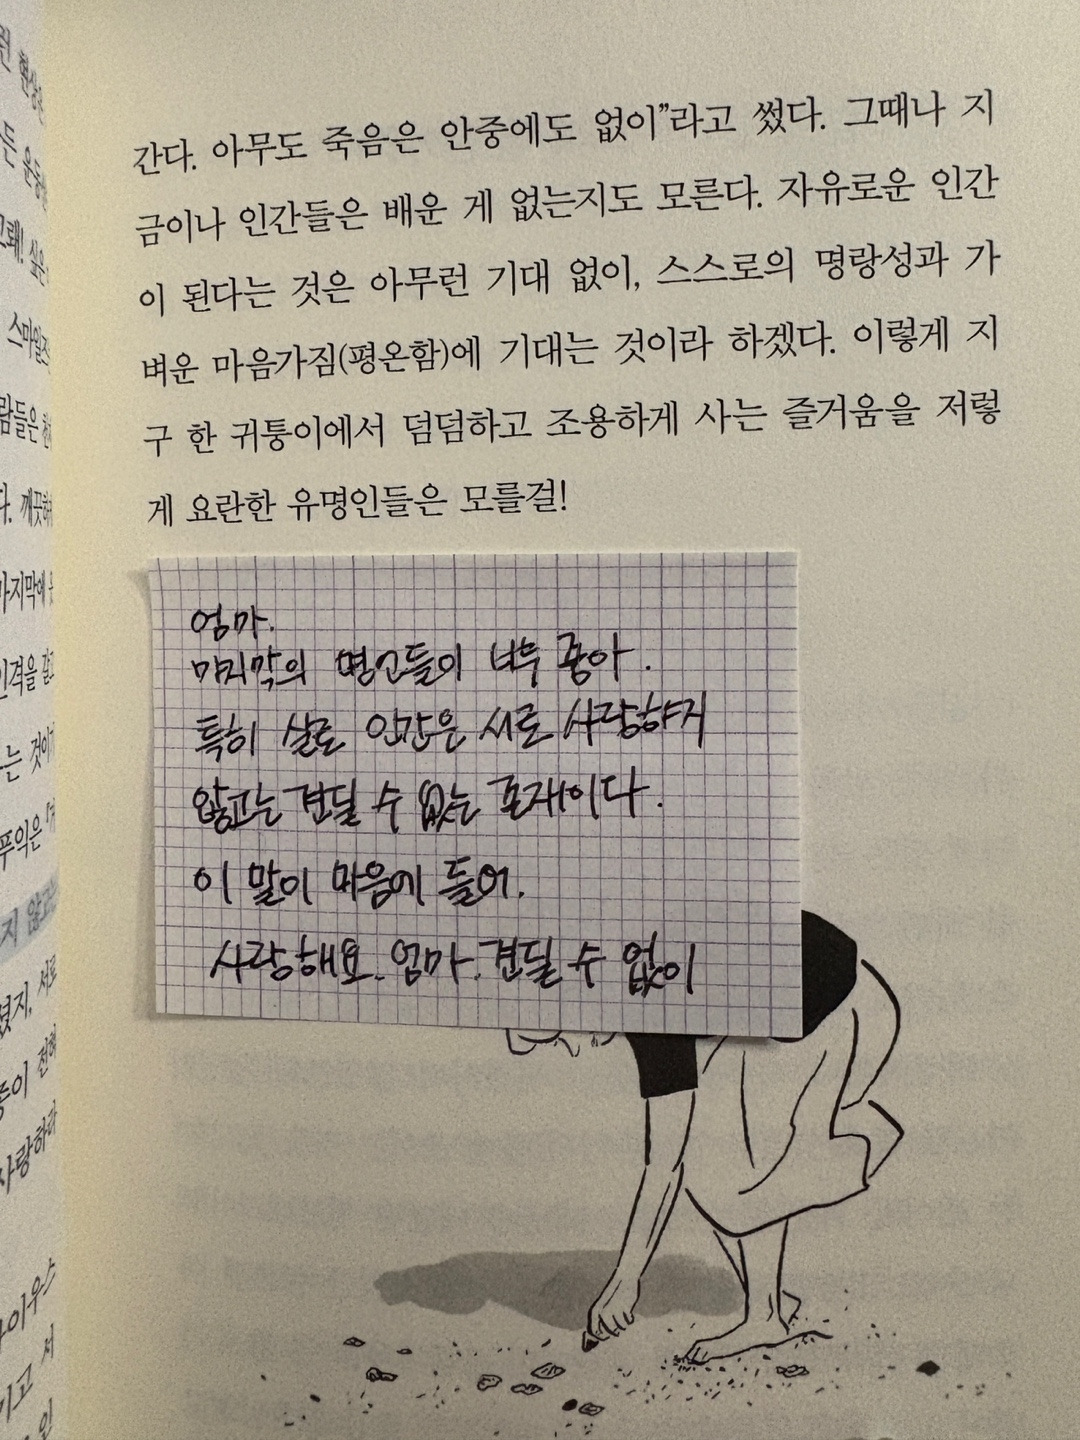 간다. 아무도 죽음은 안중에도 없이”라고 썼다. 그때나 지
금이나 인간들은 배운 게 없는지도 모른다. 자유로운 인간
이 된다는 것은 아무런 기대 없이, 스스로의 명랑성과 가
벼운 마음가짐(평온함)에 기대는 것이라 하겠다. 이렇게 지
구 한 귀퉁이에서 덤덤하고 조용하게 사는 즐거움을 저렇
게 요란한 유명인들은 모를걸!
엄마.
마지막의 명언들이 너무 좋아.
특히 실로 인간은 서로 사랑하지
않고는 견딜 수 없는 존재이다.
이 말이 마음에 들어.
사랑해요. 엄마. 견딜 수 없이